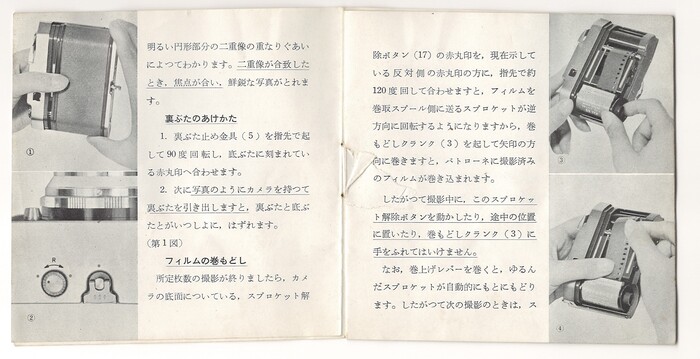 明るい円形部分の二重像の重なりぐあい
によつてわかります。二重像が合致した
とき、焦点が合い、鮮鋭な写真がとれま
す。
裏ぶたのあけかた
1. 裏ぶた止め金具（5）を指先で起
して90度回転し、底ぶたに刻まれてい
る赤丸印へ合わせます。
2. 次に写真のようにカメラを持つて
裏ぶたを引き出しますと、裏ぶたと底ぶ
たとがいつしよに、はずれます。
（第1図）
フィルムの巻もどし
所定枚数の撮影が終りましたら、カメ
ラの底面についている、スプロケット解
①
R
②
除ボタン（17）の赤丸印を、現在示して
いる反対側の赤丸印の方に、指先で約
120度回して合わせますと、フィルムを
巻取スプール側に送るスプロケットが逆
方向に回転するようになりますから、巻
もどしクランク（3）を起して矢印の方
向に巻きますと、パトローネに撮影済み
のフィルムが巻き込まれます。
したがつて撮影中に、このスプロケッ
ト解除ボタンを動かしたり、途中の位置
に置いたり、巻もどしクランク（3）に
手をふれてはいけません。
なお、巻上げレバーを巻くと、ゆるん
だスプロケットが自動的にもとにもどり
ます。したがつて次の撮影のときは、ス
3
4